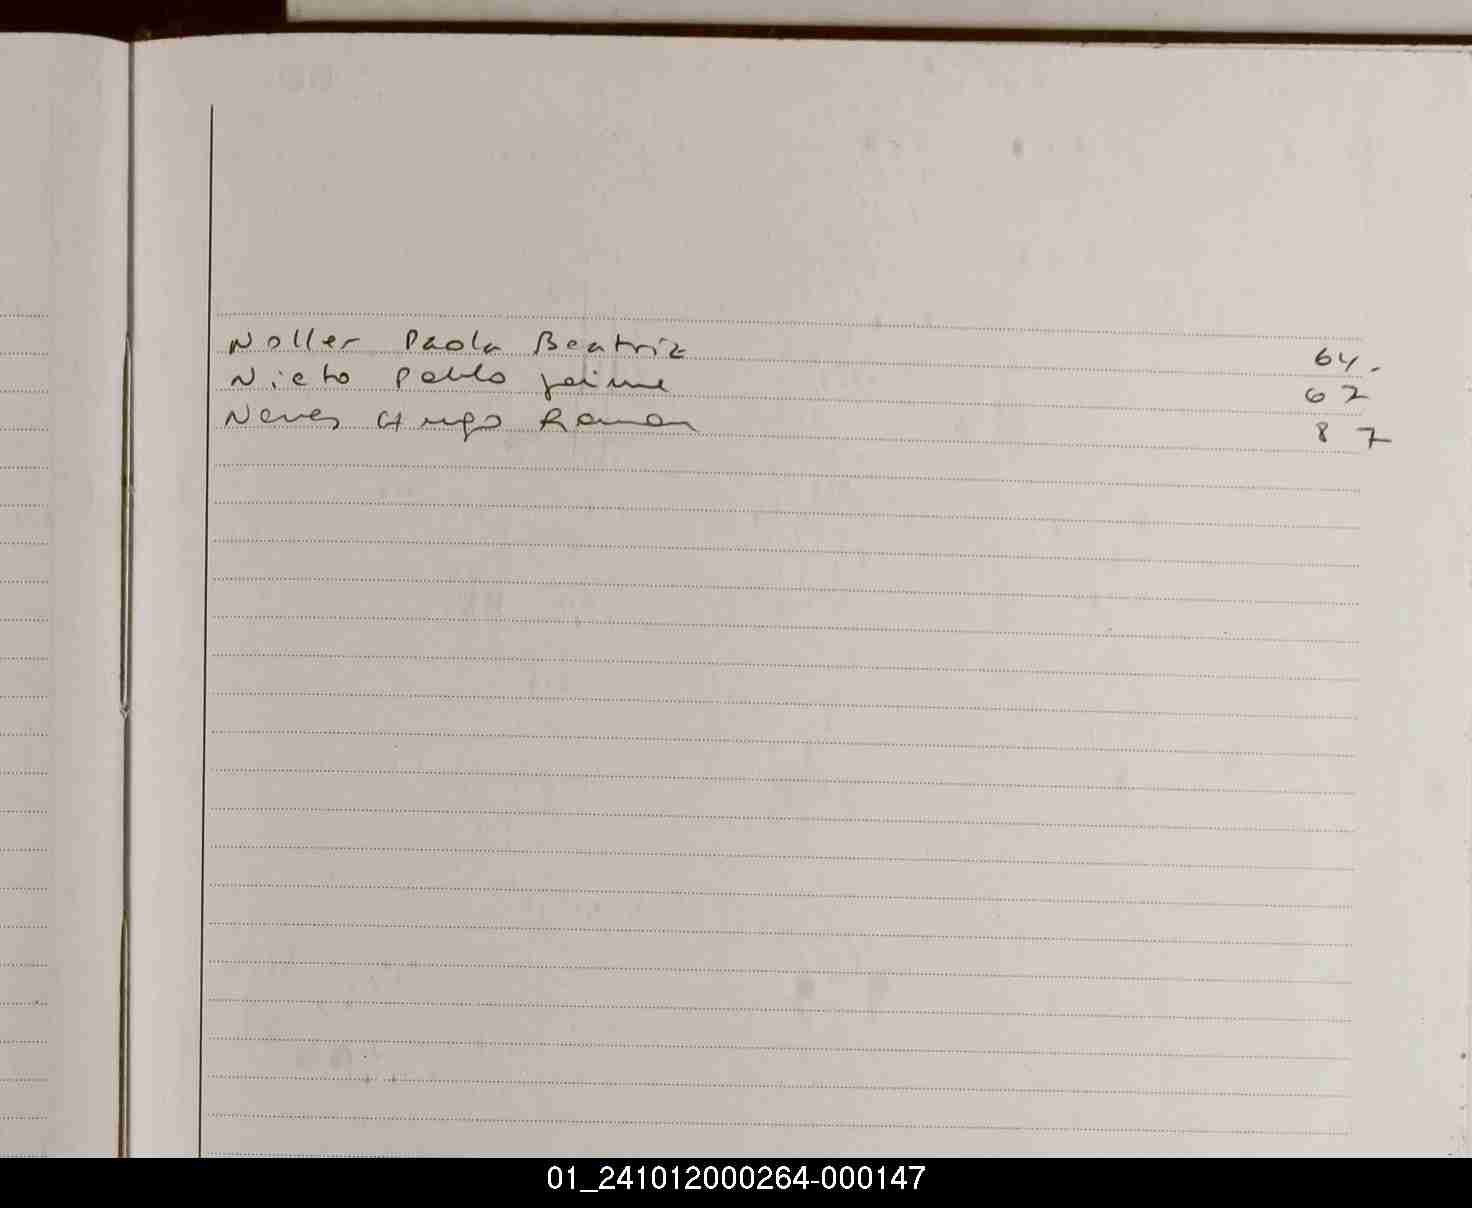 Noller Paola Beatriz 64.
Nieto Pablo Jaime 62
Neves Hugo Ramon 87
01_241012000264-000147